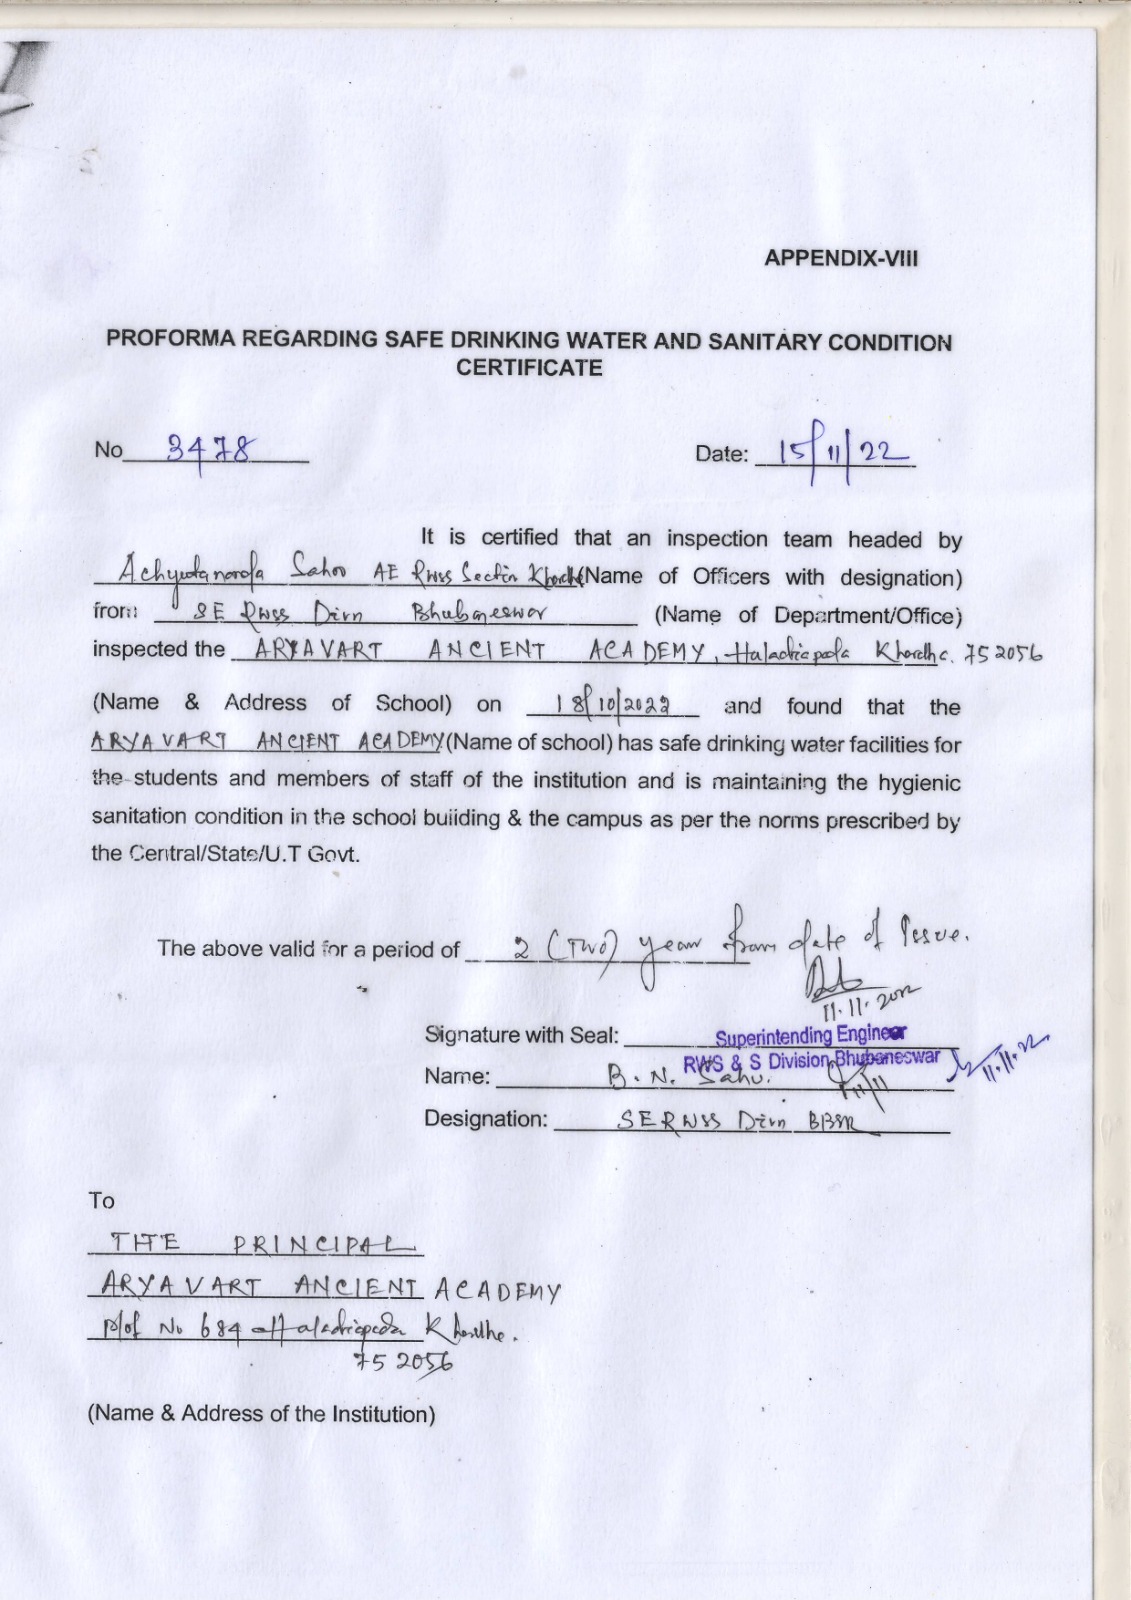 APPENDIX-VIII
PROFORMA REGARDING SAFE DRINKING WATER AND SANITARY CONDITION
CERTIFICATE
No 3478 Date: 15/11/22
It is certified that an inspection team headed by
Achyutananda Sahoo AE RWSS Section Khordha (Name of Officers with designation)
from SE RWSS Divn Bhubaneswar (Name of Department/Office)
inspected the ARYAVART ANCIENT ACADEMY, Haladiapada Khordha. 752056
(Name & Address of School) on 18/10/2022 and found that the
ARYAVART ANCIENT ACADEMY (Name of school) has safe drinking water facilities for
the students and members of staff of the institution and is maintaining the hygienic
sanitation condition in the school building & the campus as per the norms prescribed by
the Central/State/U.T Govt.
The above valid for a period of 2 (Two) year from date of Issue.
11.11.2022
Signature with Seal: Superintending Engineer
RWS & S Division, Bhubaneswar 11.11.22
Name: B. N. Sahu. 11/11
Designation: SERWSS Divn BBSR
To
THE PRINCIPAL
ARYAVART ANCIENT ACADEMY
Plot No 684 Haladiapada Khordha.
752056
(Name & Address of the Institution)